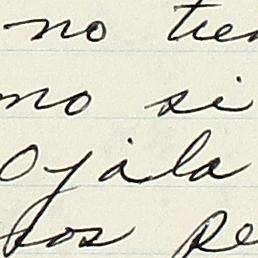 no tie
mo si
Ojala
sos pe